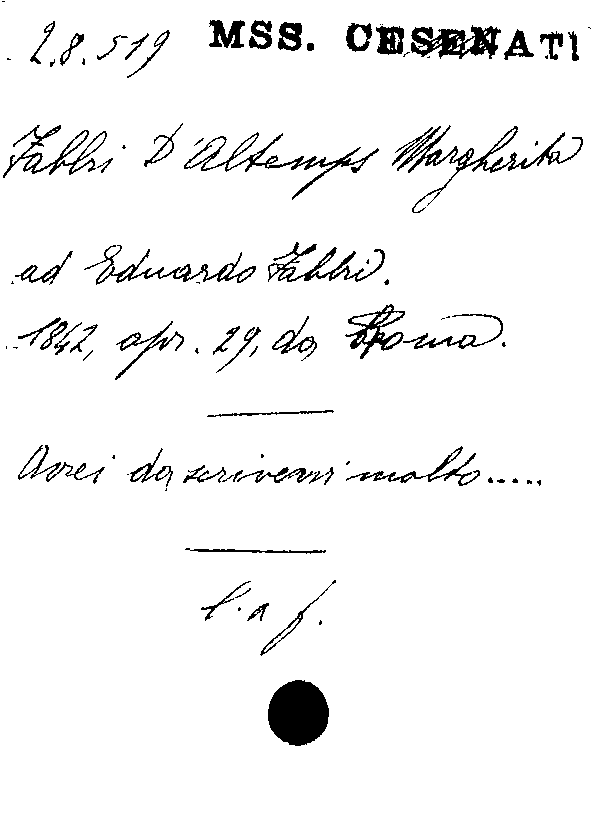 2.8.519 MSS. CESENATI
Fabbri D'Altemps Margherita
ad Eduardo Fabbri.
1842, apr. 29, da Roma.
Avrei da scriverVi molto.....
l. a f.